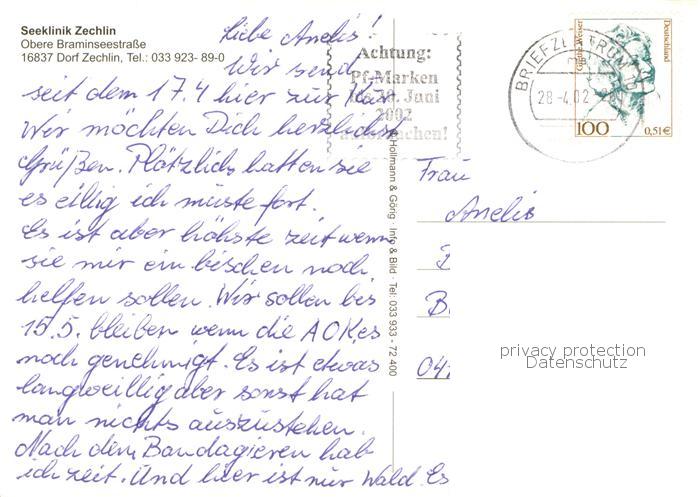 Seeklinik Zechlin
Obere Braminseestraße
16837 Dorf Zechlin, Tel.: 033 923- 89-0
Liebe Anelis!
Wir send
seit dem 17.4 hier zur Kur
Wir möchten Dich herzlichst
Grüßen. Plätzlich hatten sie
es eillig ich müste fort.
Es ist aber höhste zeit wenn
sie mir ein bischen noch
helfen sollen. Wir sollen bis
15.5. bleiben wenn die AOK es
noch genehmigt. Es ist etwas
langweillig aber sonst hat
man nichts auszustehen.
Nach dem Bandagieren hab
ich zeit. Und hier ist nur Wald. Es
Achtung:
Pf-Marken
bis 30. Juni
2002
Hollmann & Görig · Info & Bild · Tel: 033 933 - 72 400
BRIEFZENTRUM
28-4.02
Grethe Weiser
Deutschland
100
0,51€
Frau
Anelis
B
04
privacy protection
Datenschutz